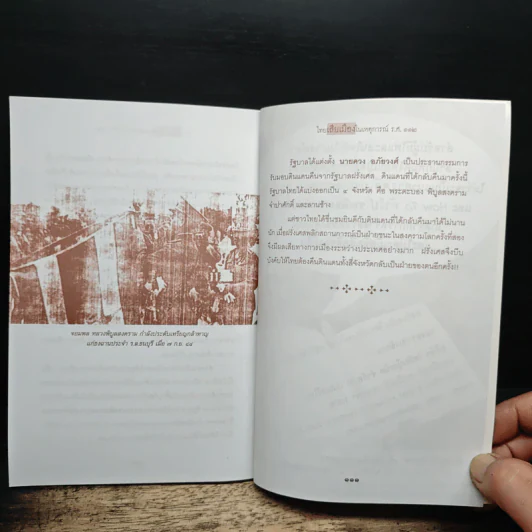 จอมพล หลวงพิบูลสงคราม กำลังประดับเหรียญกล้าหาญ
แก่ธงฌานประจำ ร.ต.ธนบุรี เมื่อ ๗ ก.ย. ๘๔
ไทยเสียเมืองในเหตุการณ์ ร.ศ. ๑๑๒
รัฐบาลได้แต่งตั้ง นายควง อภัยวงศ์ เป็นประธานกรรมการ
รับมอบดินแดนคืนจากรัฐบาลฝรั่งเศส ดินแดนที่ได้กลับคืนมาครั้งนี้
รัฐบาลไทยได้แบ่งออกเป็น ๔ จังหวัด คือ พระตะบอง พิบูลสงคราม
จำปาศักดิ์ และลานช้าง
แต่ชาวไทยได้ชื่นชมยินดีกับดินแดนที่ได้กลับคืนมาได้ไม่นาน
นัก เมื่อฝรั่งเศสพลิกสถานการณ์เป็นฝ่ายชนะในสงครามโลกครั้งที่สอง
จึงมีผลเสียทางการเมืองระหว่างประเทศอย่างมาก ฝรั่งเศสจึงบีบ
บังคับให้ไทยต้องคืนดินแดนทั้งสี่จังหวัดกลับเป็นฝ่ายของตนอีกครั้ง!!
๑๑๑